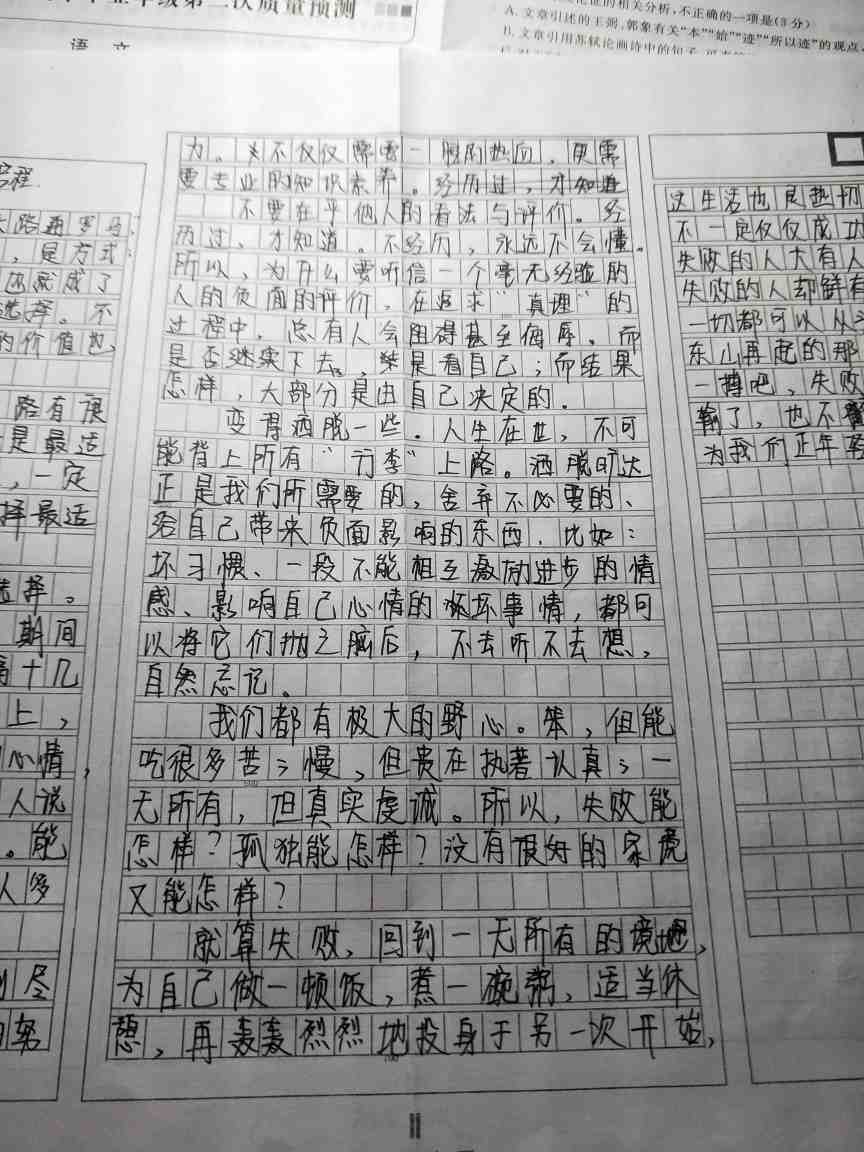 年级第二次质量预测
语 文
的相关分析,不正确的一项是(3分)
A.文章引述的王弼、郭象有关“本”“始”“迹”“所以迹”的观点,
B.文章引用苏轼论画诗中的句子
路通罗马,
,是方式;
还就成了
选择。不
的价值也,
路有很
是最适
,一定
择最适
选择。
期间
十几
上,
心情,
人说
。能
人多
尽
努
为。不仅仅需要一腔的热血,更需
要专业的知识素养。经历过,才知道
不要在乎他人的看法与评价。经
历过,才知道。不经历,永远不会懂。
所以,为什么要听信一个毫无经验的
人的负面的评价,在追求“真理”的
过程中,总有人会阻碍甚至侮辱。而
是否继续下去,禁是看自己;而结果
怎样,大部分是由自己决定的。
变得洒脱一些。人生在世,不可
能背上所有“行李”上路。洒脱旷达
正是我们所需要的,舍弃不必要的、
给自己带来负面影响的东西,比如:
坏习惯、一段不能相互激励进步的情
感、影响自己心情的烦坏事情,都可
以将它们抛之脑后,不去听不去想,
自然忘记。
我们都有极大的野心。笨,但能
吃很多苦;慢,但贵在执著认真;一
无所有,但真实虔诚。所以,失败能
怎样?孤独能怎样?没有很好的家境
又能怎样?
就算失败,回到一无所有的境地,
为自己做一顿饭,煮一碗粥,适当休
憩,再轰轰烈烈地投身于另一次开始,
这生活也足热切
不一定仅仅成功
失败的人大有人
失败的人却鲜有
一切都可以从
东山再起的那
一搏吧,失败
输了,也不
为我们正年轻